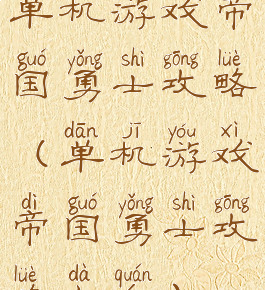 单机游戏帝
guó yǒng shì gōng lüè
国勇士攻略
dān jī yóu xì
(单机游戏
dì guó yǒng shì gōng
帝国勇士攻
lüè dà quán